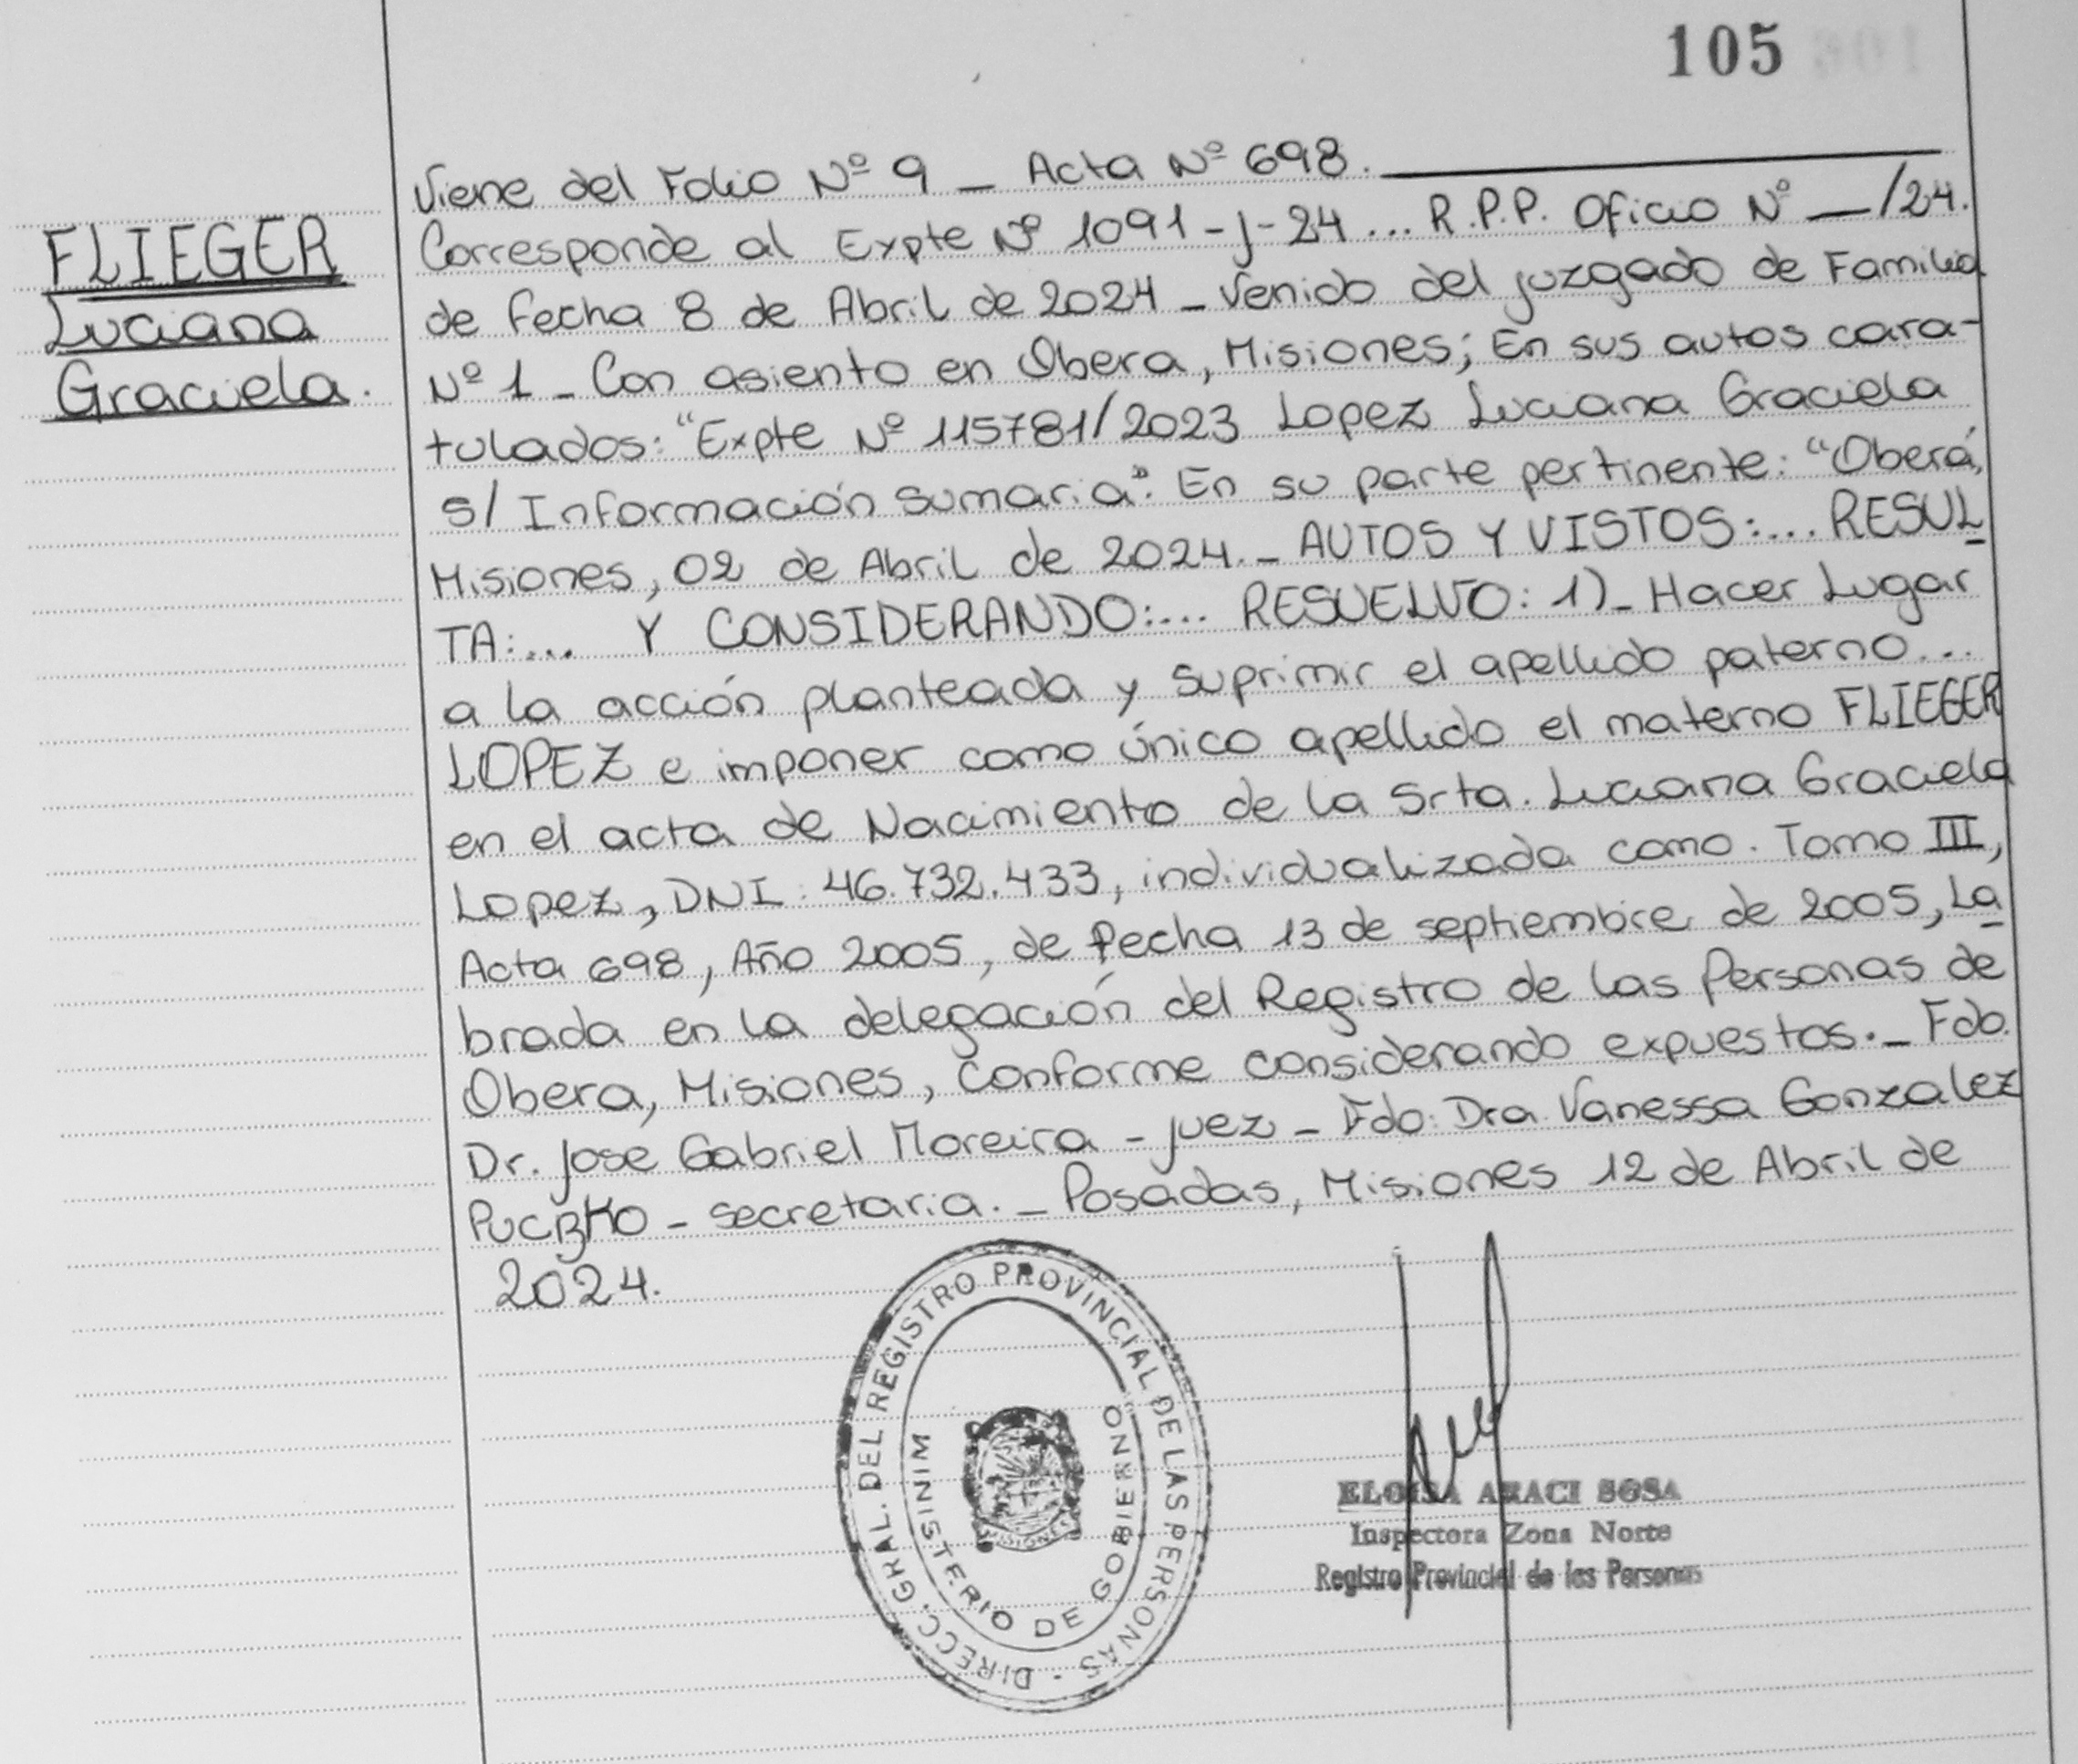 105
FLIEGER
Luciana
Graciela.
Viene del Folio Nº 9 _ Acta Nº 698.
Corresponde al Expte Nº 1091-J-24 ... R.P.P. Oficio Nº __/24.
de fecha 8 de Abril de 2024 _ Venido del juzgado de Familia
Nº 1 _ Con asiento en Obera, Misiones; En sus autos cara-
tulados: "Expte Nº 115781/2023 Lopez Luciana Graciela
s/ Información sumaria". En su parte pertinente: "Oberá,
Misiones, 02 de Abril de 2024._ AUTOS Y VISTOS:... RESUL
TA:... Y CONSIDERANDO:... RESUELVO: 1)_ Hacer Lugar
a la acción planteada y suprimir el apellido paterno...
LOPEZ e imponer como único apellido el materno FLIEGER
en el acta de Nacimiento de la Srta. Luciana Graciela
Lopez, DNI: 46.732.433, individualizada como. Tomo III,
Acta 698, Año 2005, de fecha 13 de septiembre de 2005, La
brada en la delegación del Registro de las Personas de
Obera, Misiones, Conforme considerando expuestos._ Fdo.
Dr. Jose Gabriel Moreira - juez - Fdo: Dra Vanessa Gonzalez
- secretaria._ Posadas, Misiones 12 de Abril de
2024.
DIRECC. GRAL. DEL REGISTRO PROVINCIAL DE LAS PERSONAS -
MINISTERIO DE GOBIERNO
ELOISA ARACI SOSA
Inspectora Zona Norte
Registro Provincial de las Personas